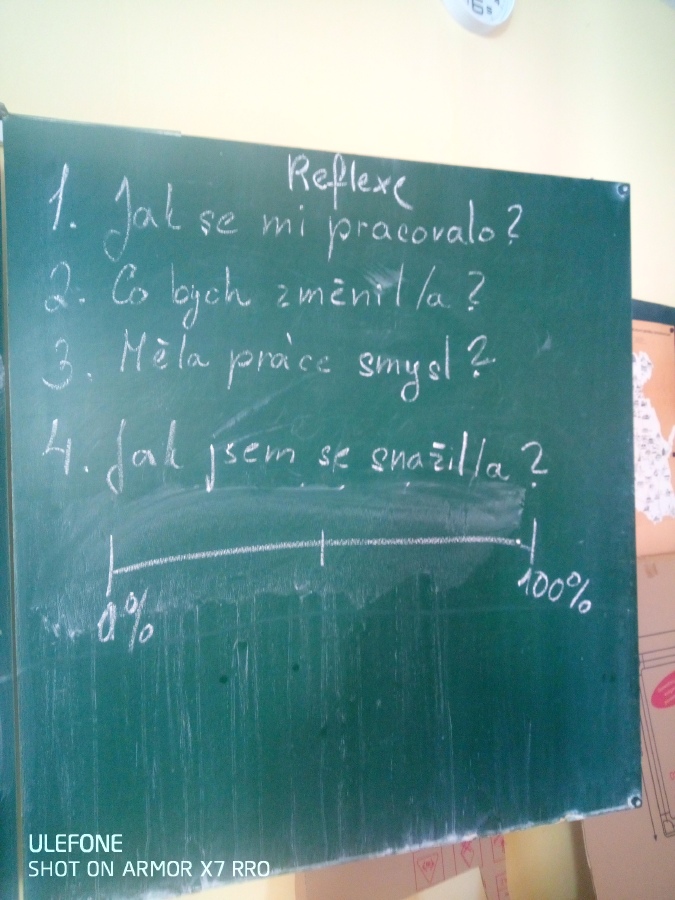 Reflexe
1. Jak se mi pracovalo?
2. Co bych změnil/a?
3. Měla práce smysl?
4. Jak jsem se snažil/a?
0%
100%
ULEFONE
SHOT ON ARMOR X7 RRO